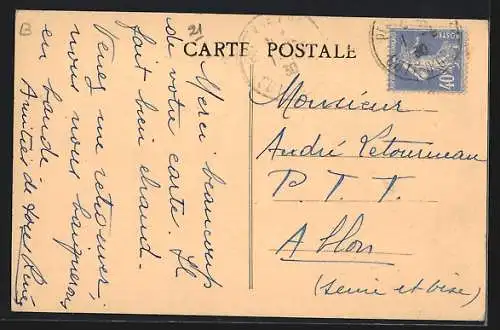 B
21
CARTE POSTALE
Merci beaucoup
de votre carte. Il
fait bien chaud.
Venez me retrouver,
nous nous baignerons
en bande
Amitiés de
POSTES
40c
30
Monsieur
André Letourneau
P. T. T.
Ablon
(Seine et Oise)